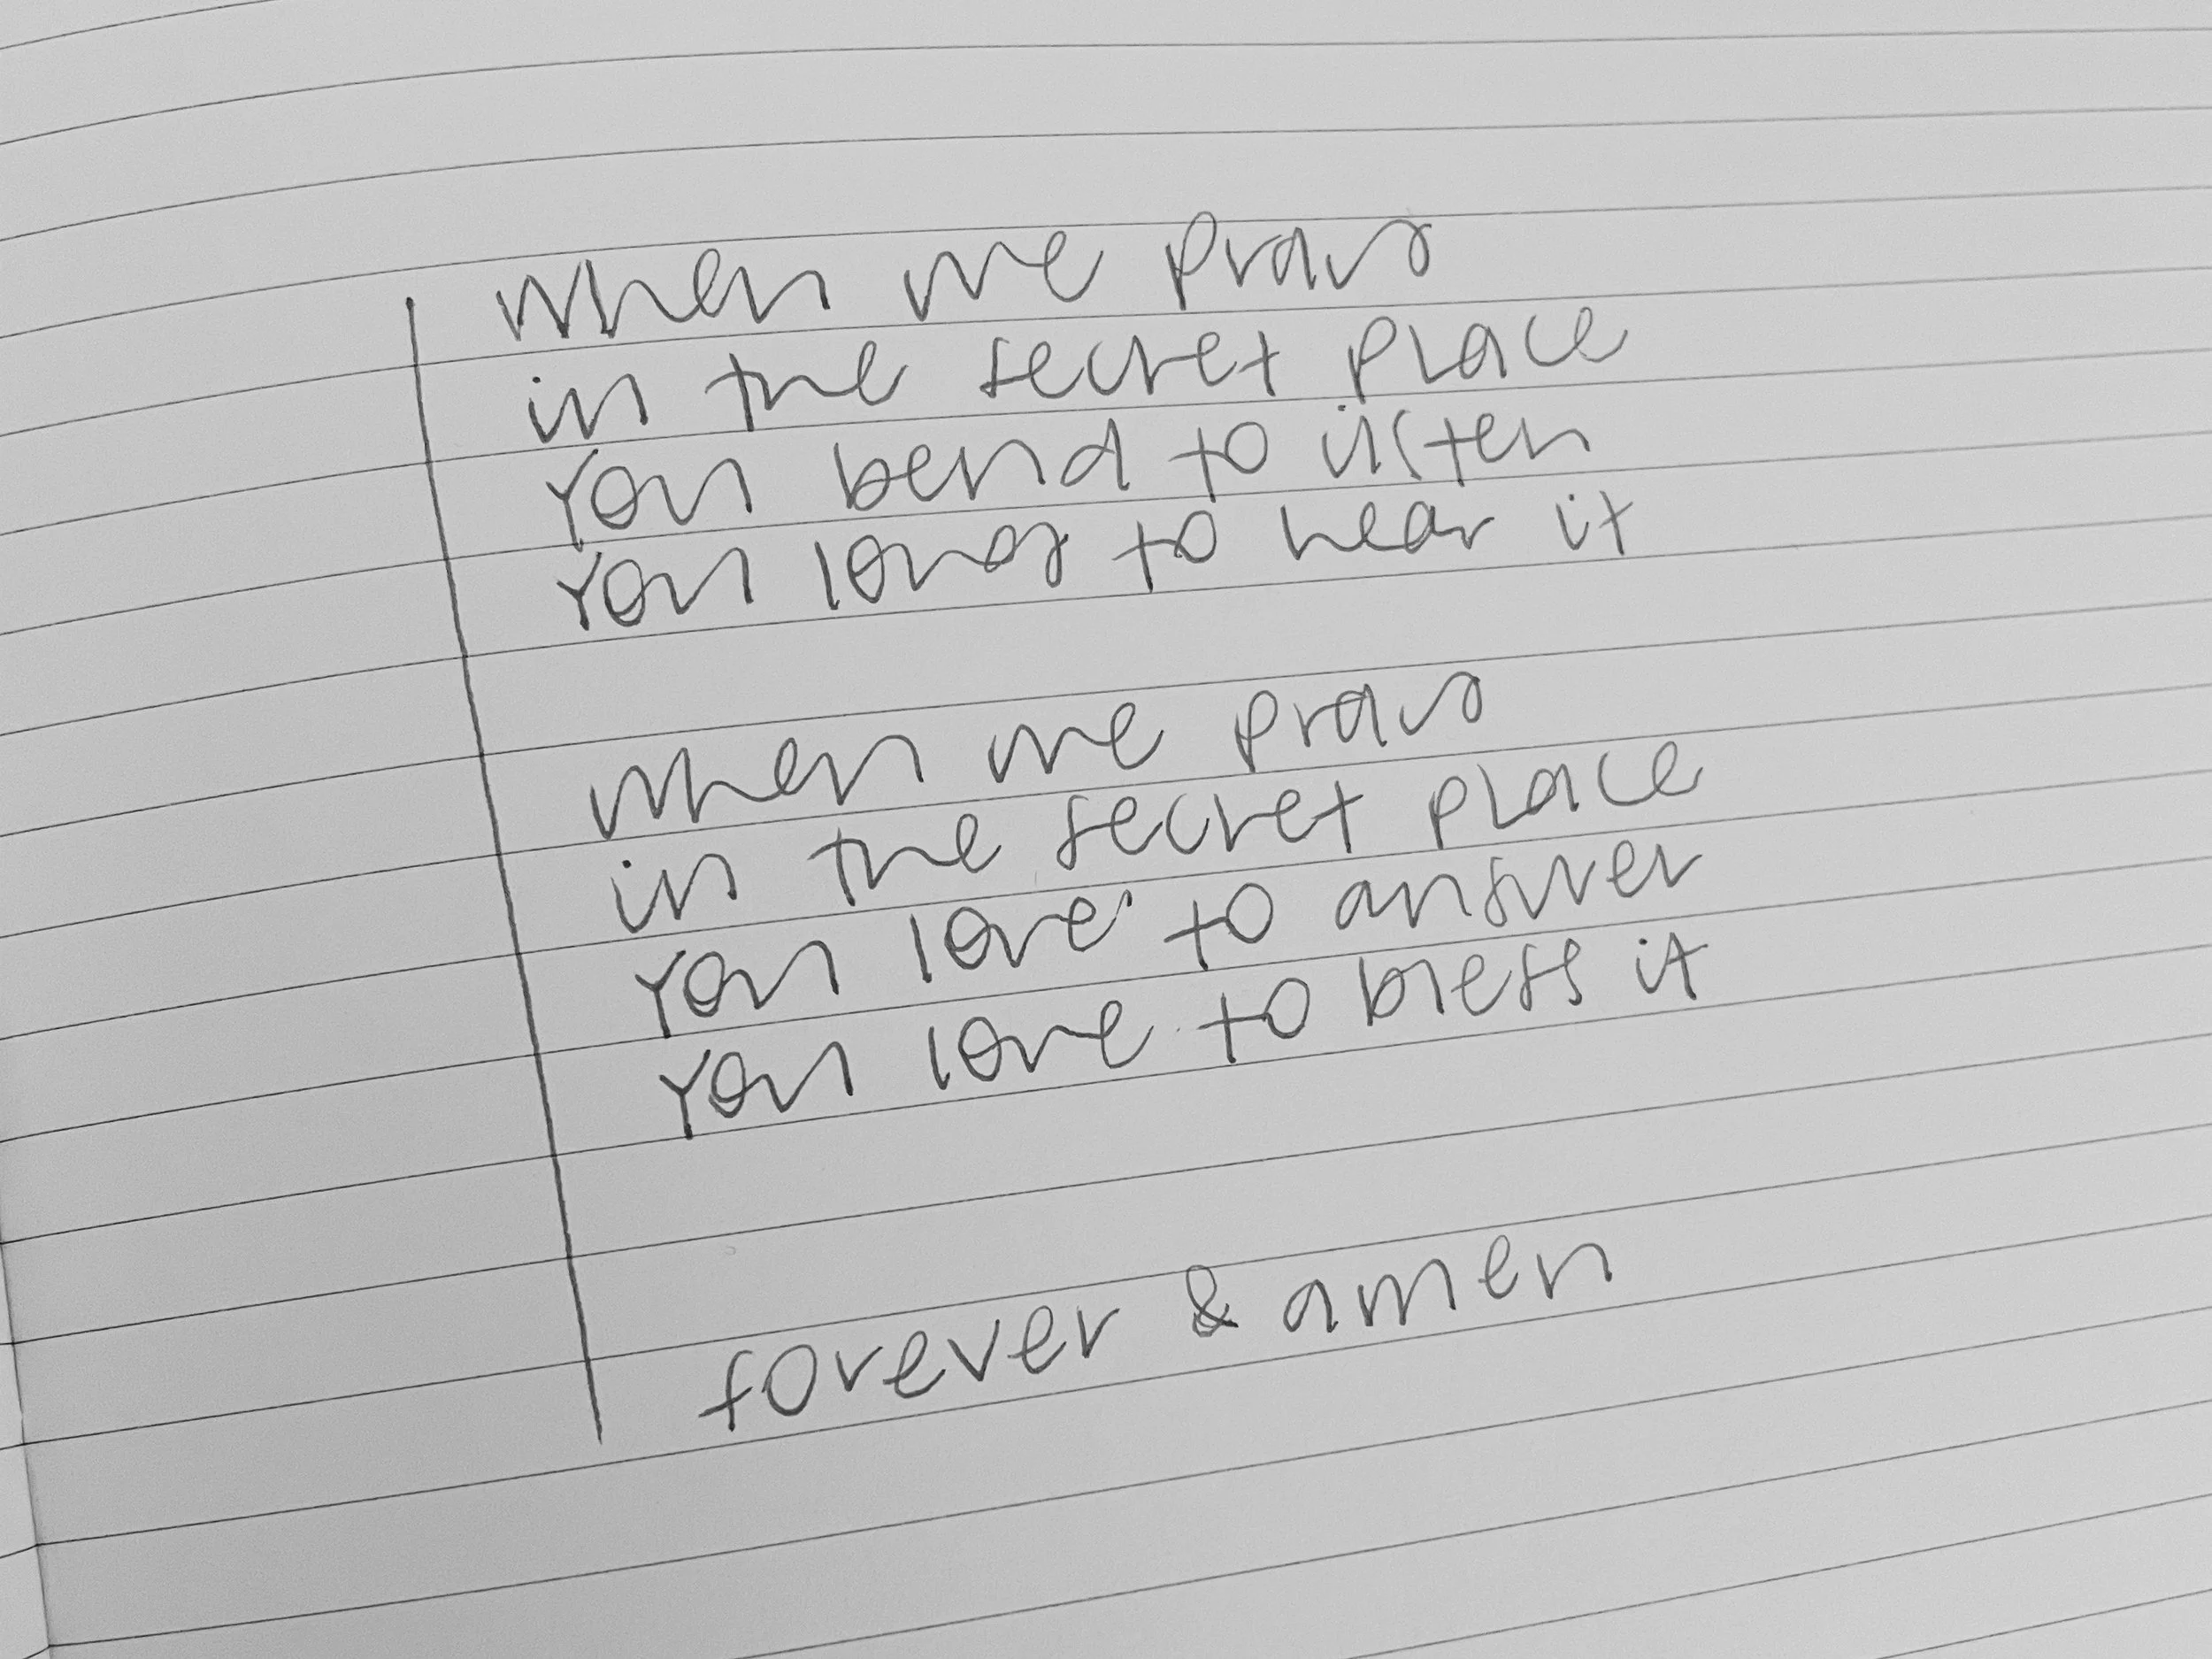 when we pray
in the secret place
You bend to listen
You long to hear it
when we pray
in the secret place
You love to answer
You love to bless it
forever & amen